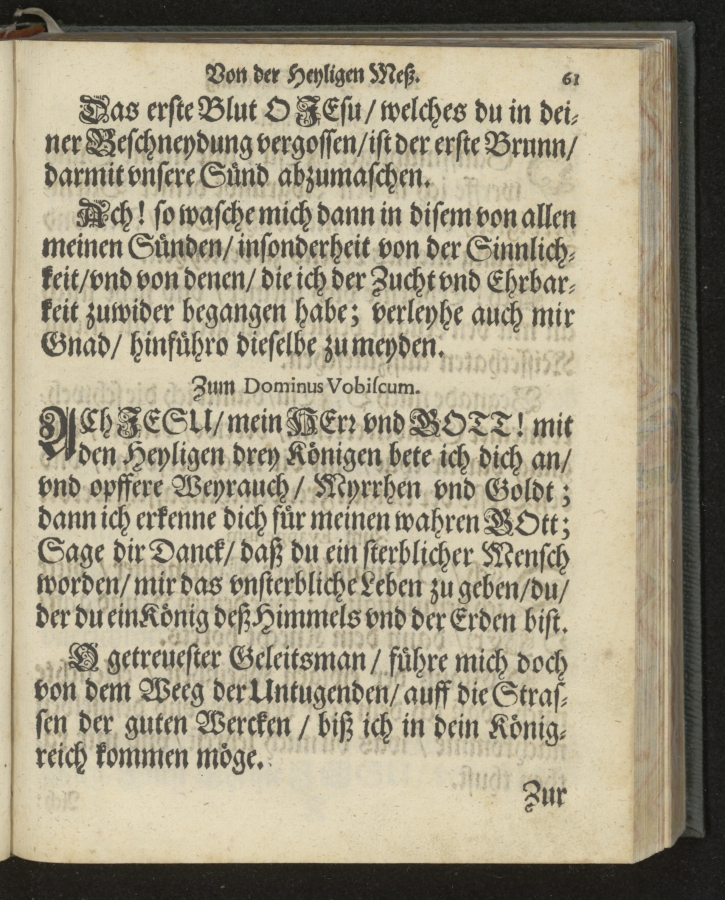 Von der Heyligen Meß. 61
Das erste Blut O JEsu / welches du in dei-
ner Beschneydung vergossen / ist der erste Brunn /
darmit vnsere Sünd abzumaschen.
Ach! so wasche mich dann in disem von allen
meinen Sünden / insonderheit von der Sinnlich-
keit / vnd von denen / die ich der Zucht vnd Ehrbar-
keit zuwider begangen habe; verleyhe auch mir
Gnad / hinführo dieselbe zu meyden.
Zum Dominus Vobiscum.
ACh JESU / mein HErr vnd GOTT! mit
den Heyligen drey Königen bete ich dich an /
vnd opffere Weyrauch / Myrrhen vnd Goldt;
dann ich erkenne dich für meinen wahren GOtt;
Sage dir Danck / daß du ein sterblicher Mensch
worden / mir das vnsterbliche Leben zu geben / du /
der du ein König deß Himmels vnd der Erden bist.
O getreuester Geleitsman / führe mich doch
von dem Weeg der Untugenden / auff die Stras-
sen der guten Wercken / biß ich in dein König-
reich kommen möge.
Zur